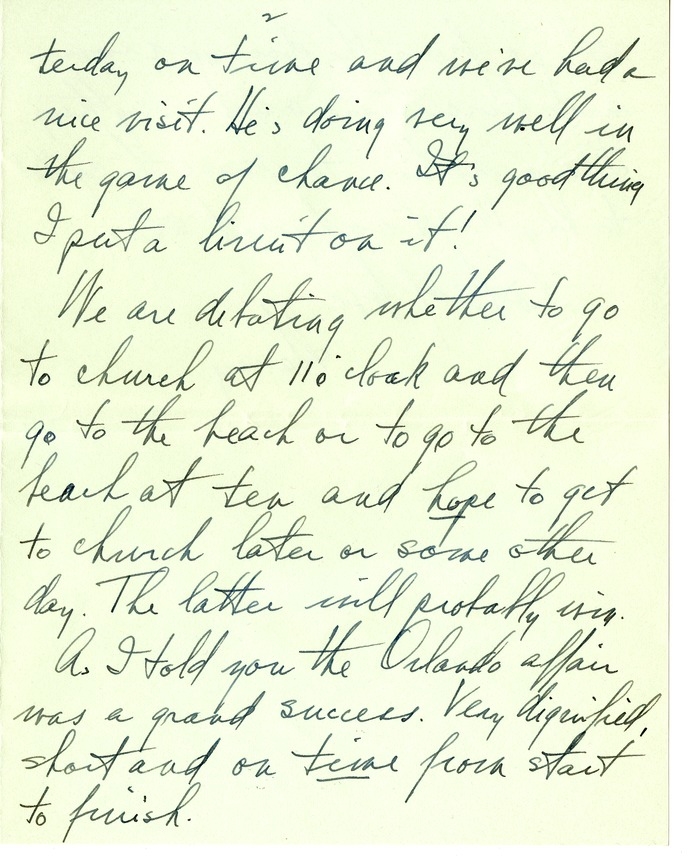 2
terday on time and we've had a
nice visit. He's doing very well in
the game of chance. It's good thing
I put a limit on it!
We are debating whether to go
to church at 11 o'clock and then
go to the beach or to go to the
beach at ten and hope to get
to church later or some other
day. The latter will probably win.
As I told you the Orlando affair
was a grand success. Very dignified,
short and on time from start
to finish.